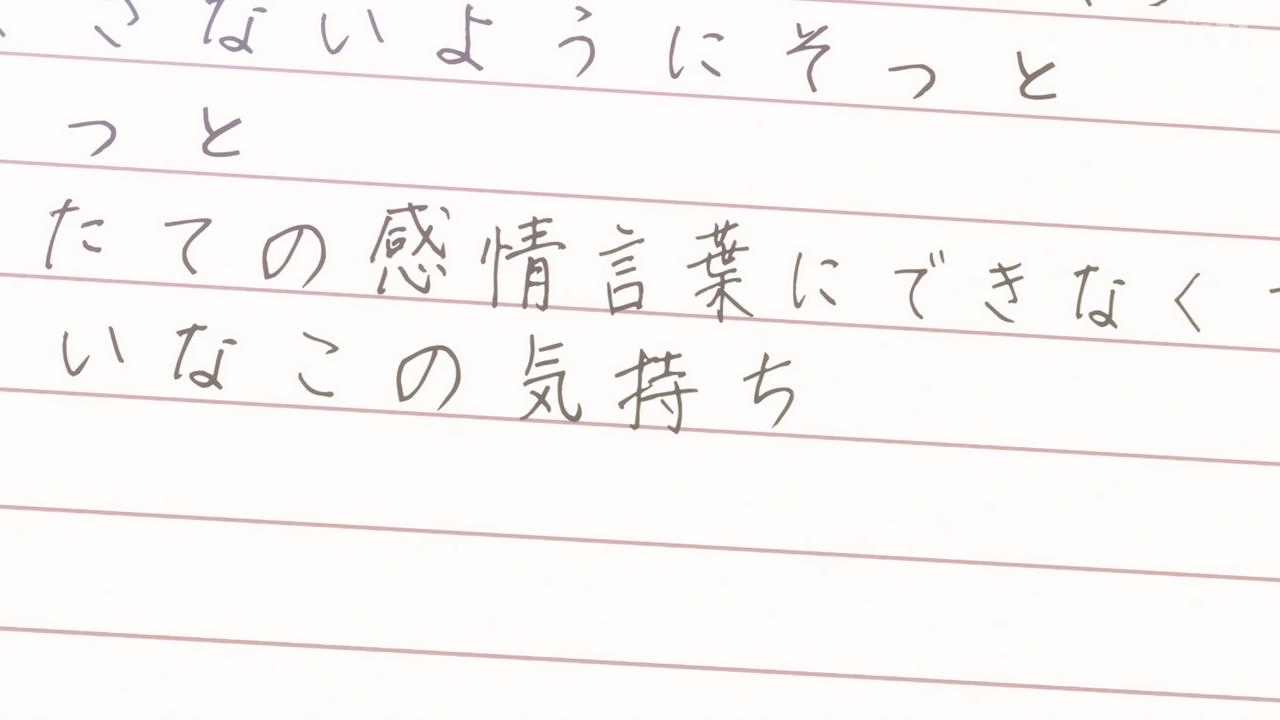 さないようにそっと
っと
たての感情言葉にできなく
いなこの気持ち